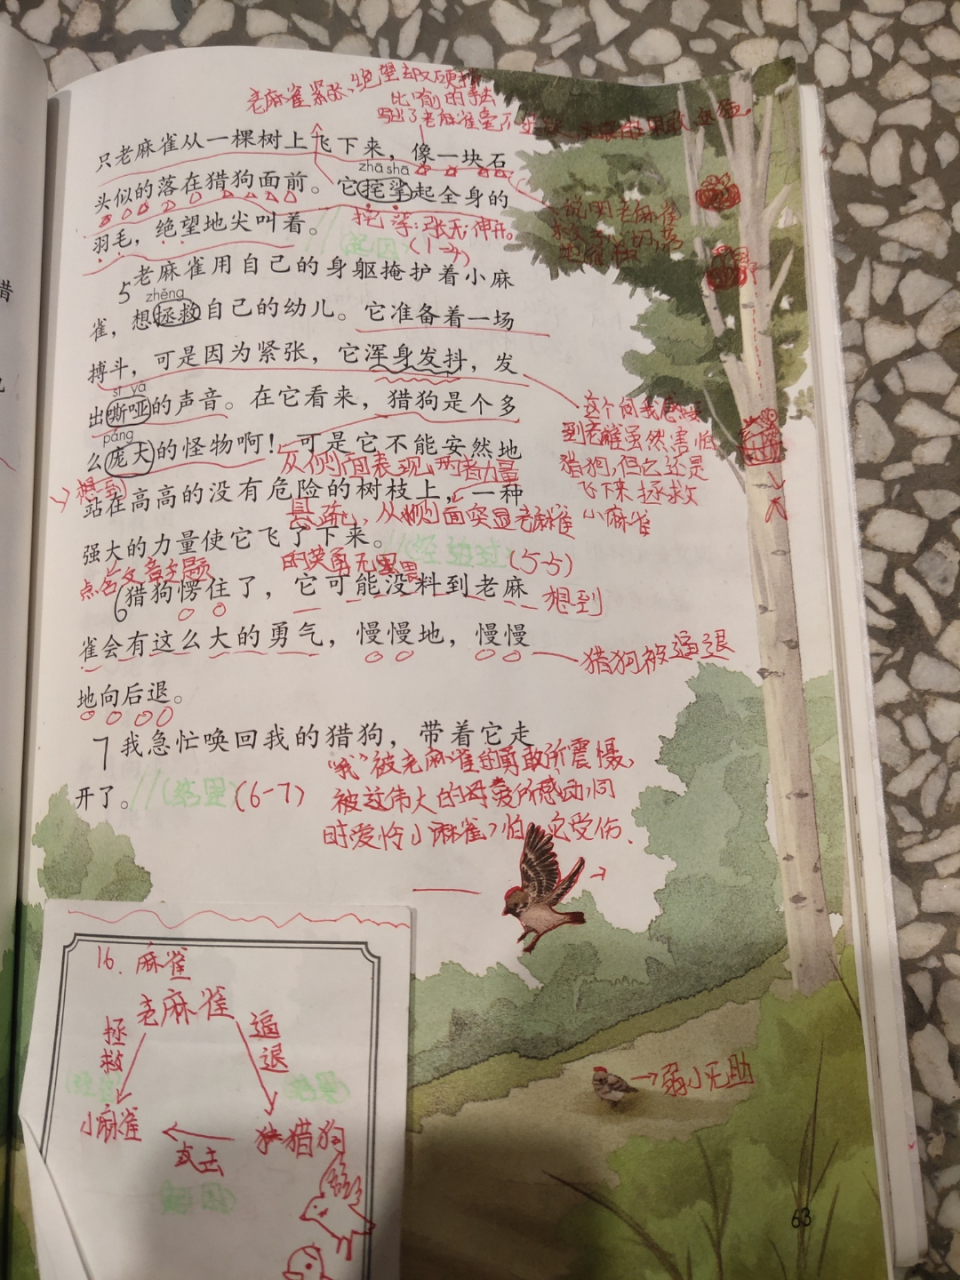 老麻雀紧张、绝望却又硬撑
比喻的手法
只老麻雀从一棵树上飞下来，像一块石
zhā shā
头似的落在猎狗面前。它挓挲起全身的
挓挲：张开,伸开。
说明老麻雀
羽毛，绝望地尖叫着。
5 老麻雀用自己的身躯掩护着小麻
zhěng
雀，想拯救自己的幼儿。它准备着一场
搏斗，可是因为紧张，它浑身发抖，发
sī yā
出嘶哑的声音。在它看来，猎狗是个多
páng
么庞大的怪物啊！可是它不能安然地
从侧面表现两者力量
想到
站在高高的没有危险的树枝上，一种
悬疏，从侧面突显老麻雀
强大的力量使它飞了下来。
的英勇无畏
(5-5)
点名文章主题
到老雀虽然害怕
猎狗,但它还是
飞下来拯救
小麻雀
6 猎狗愣住了，它可能没料到老麻
想到
雀会有这么大的勇气，慢慢地，慢慢
猎狗被逼退
地向后退。
7 我急忙唤回我的猎狗，带着它走
“我”被老麻雀的勇敢所震慑,
开了。
(结果)
(6-7)
被这伟大的母爱所感动,同
时爱怜小麻雀,怕它受伤.
16. 麻雀
老麻雀
拯救
逼退
小麻雀
猎狗
攻击
弱小无助
63